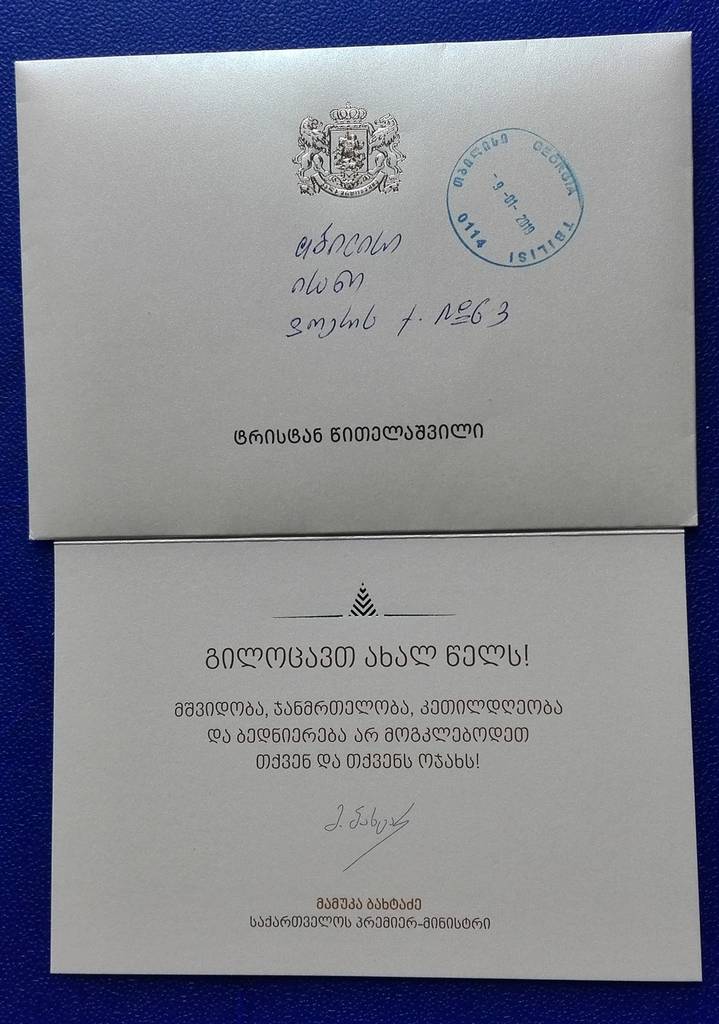 თბილისი GEORGIA
- 9 -01- 2019
0114 TBILISI
თბილისი
ისანი
ქ. №63
ტრისტან წითელაშვილი
გილოცავთ ახალ წელს!
მშვიდობა, ჯანმრთელობა, კეთილდღეობა
და ბედნიერება არ მოგკლებოდეთ
თქვენ და თქვენს ოჯახს!
მ. ბახტაძე
მამუკა ბახტაძე
საქართველოს პრემიერ-მინისტრი